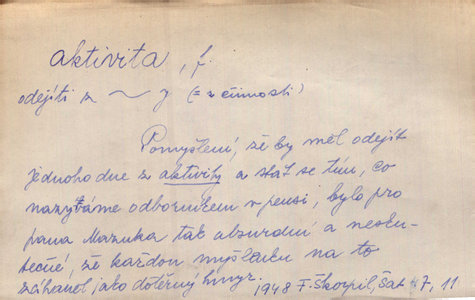 aktivita, f.
odejíti z ~ y (= z činnosti)
Pomyšlení, že by měl odejít
jednoho dne z aktivity a stát se tím, co
nazýváme odborníkem v pensi, bylo pro
pana Mazuka tak absurdní a nesku-
tečné, že každou myšlenku na to
záhaněl jako dotěrný hmyz.
1948 F. Škorpil, Šat 47, 11